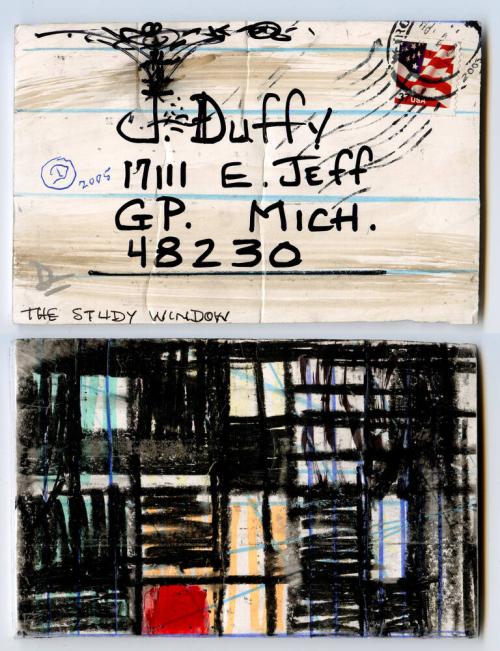 J. Duffy
17111 E. Jeff
GP. Mich.
48230
D 2005
THE STUDY WINDOW
USA
2005